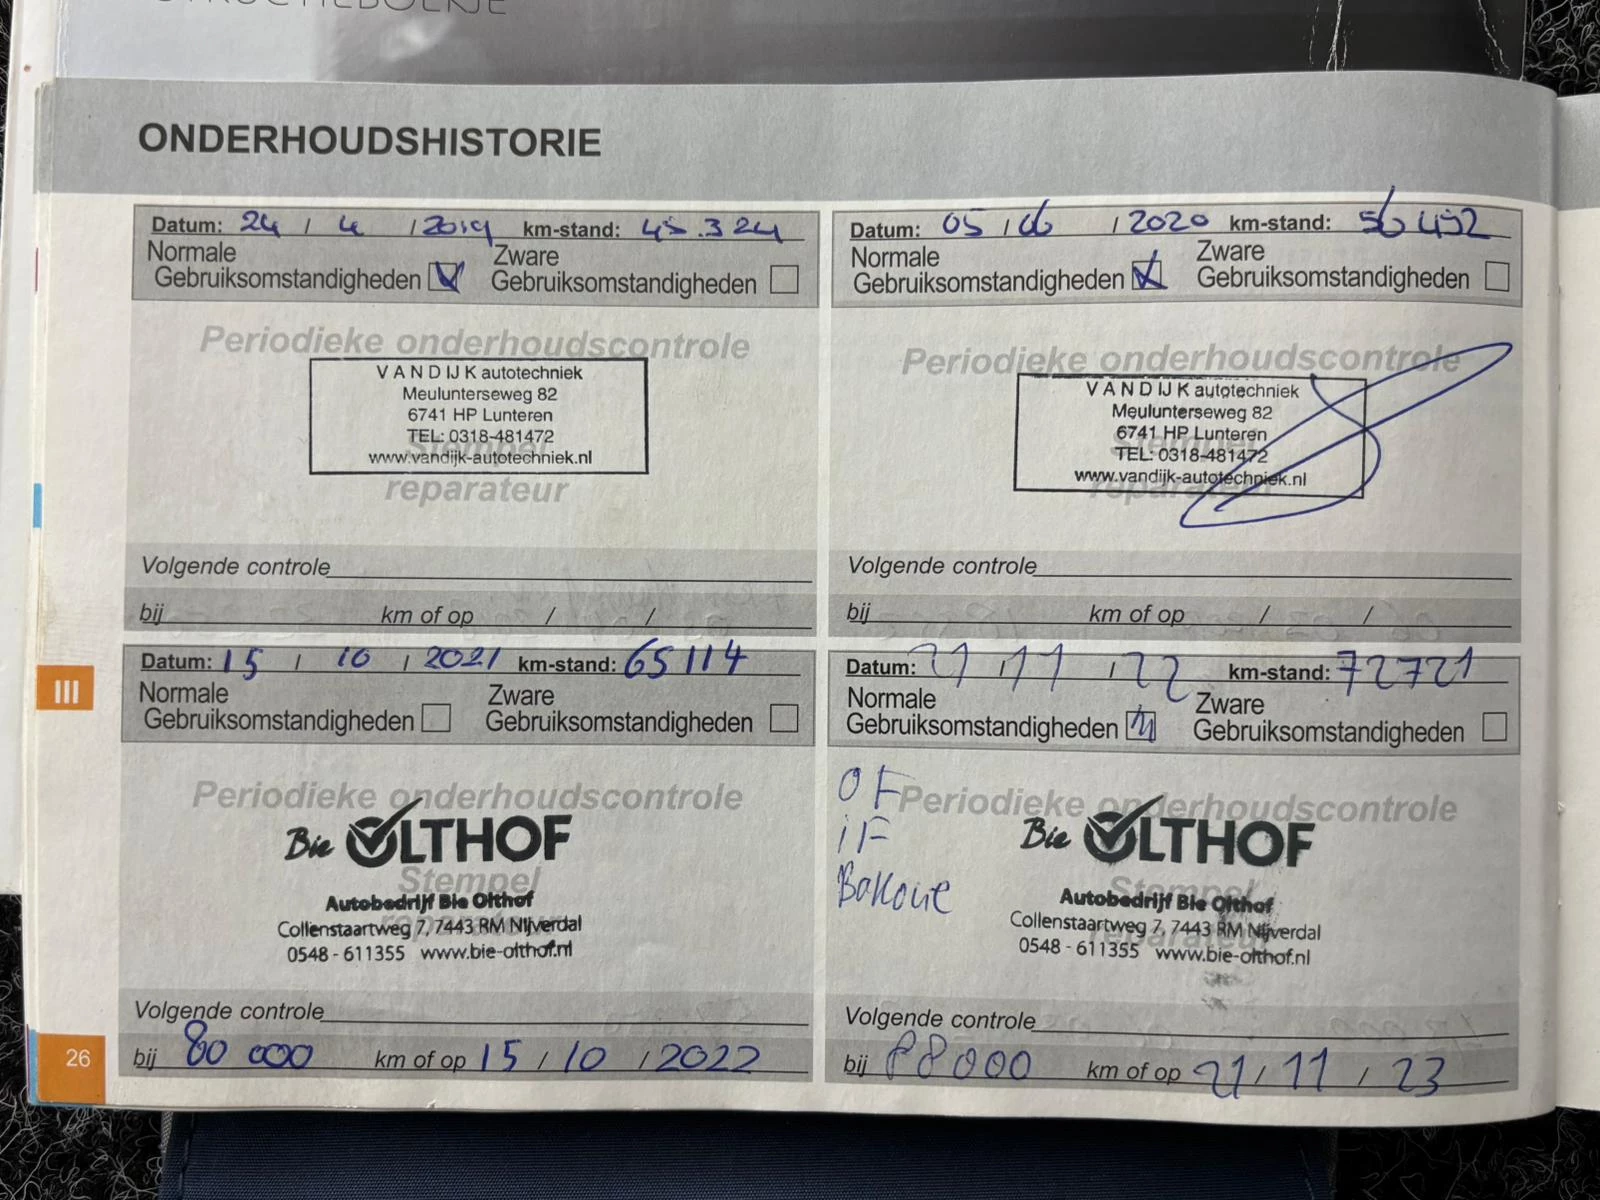 STRUCTIEBOEKJE
ONDERHOUDSHISTORIE
Datum: 24 / 4 / 2019 km-stand: 45.324
Normale Gebruiksomstandigheden
Zware Gebruiksomstandigheden
Periodieke onderhoudscontrole
Stempel
reparateur
V A N D IJ K autotechniek
Meulunterseweg 82
6741 HP Lunteren
TEL: 0318-481472
www.vandijk-autotechniek.nl
Volgende controle
bij km of op / /
Datum: 05 / 06 / 2020 km-stand: 56 492
Normale Gebruiksomstandigheden
Zware Gebruiksomstandigheden
Periodieke onderhoudscontrole
Stempel
reparateur
V A N D IJ K autotechniek
Meulunterseweg 82
6741 HP Lunteren
TEL: 0318-481472
www.vandijk-autotechniek.nl
Volgende controle
bij km of op / /
Datum: 15 / 10 / 2021 km-stand: 65114
Normale Gebruiksomstandigheden
Zware Gebruiksomstandigheden
Periodieke onderhoudscontrole
Stempel
reparateur
Bie OLTHOF
Autobedrijf Bie Olthof
Collenstaartweg 7, 7443 RM Nijverdal
0548 - 611355 www.bie-olthof.nl
Volgende controle
bij 80 000 km of op 15 / 10 / 2022
Datum: 21 / 11 / 22 km-stand: 72721
Normale Gebruiksomstandigheden
Zware Gebruiksomstandigheden
OF
iF
Periodieke onderhoudscontrole
Stempel
reparateur
Bie OLTHOF
Autobedrijf Bie Olthof
Collenstaartweg 7, 7443 RM Nijverdal
0548 - 611355 www.bie-olthof.nl
Volgende controle
bij 88000 km of op 21 / 11 / 23
III
26